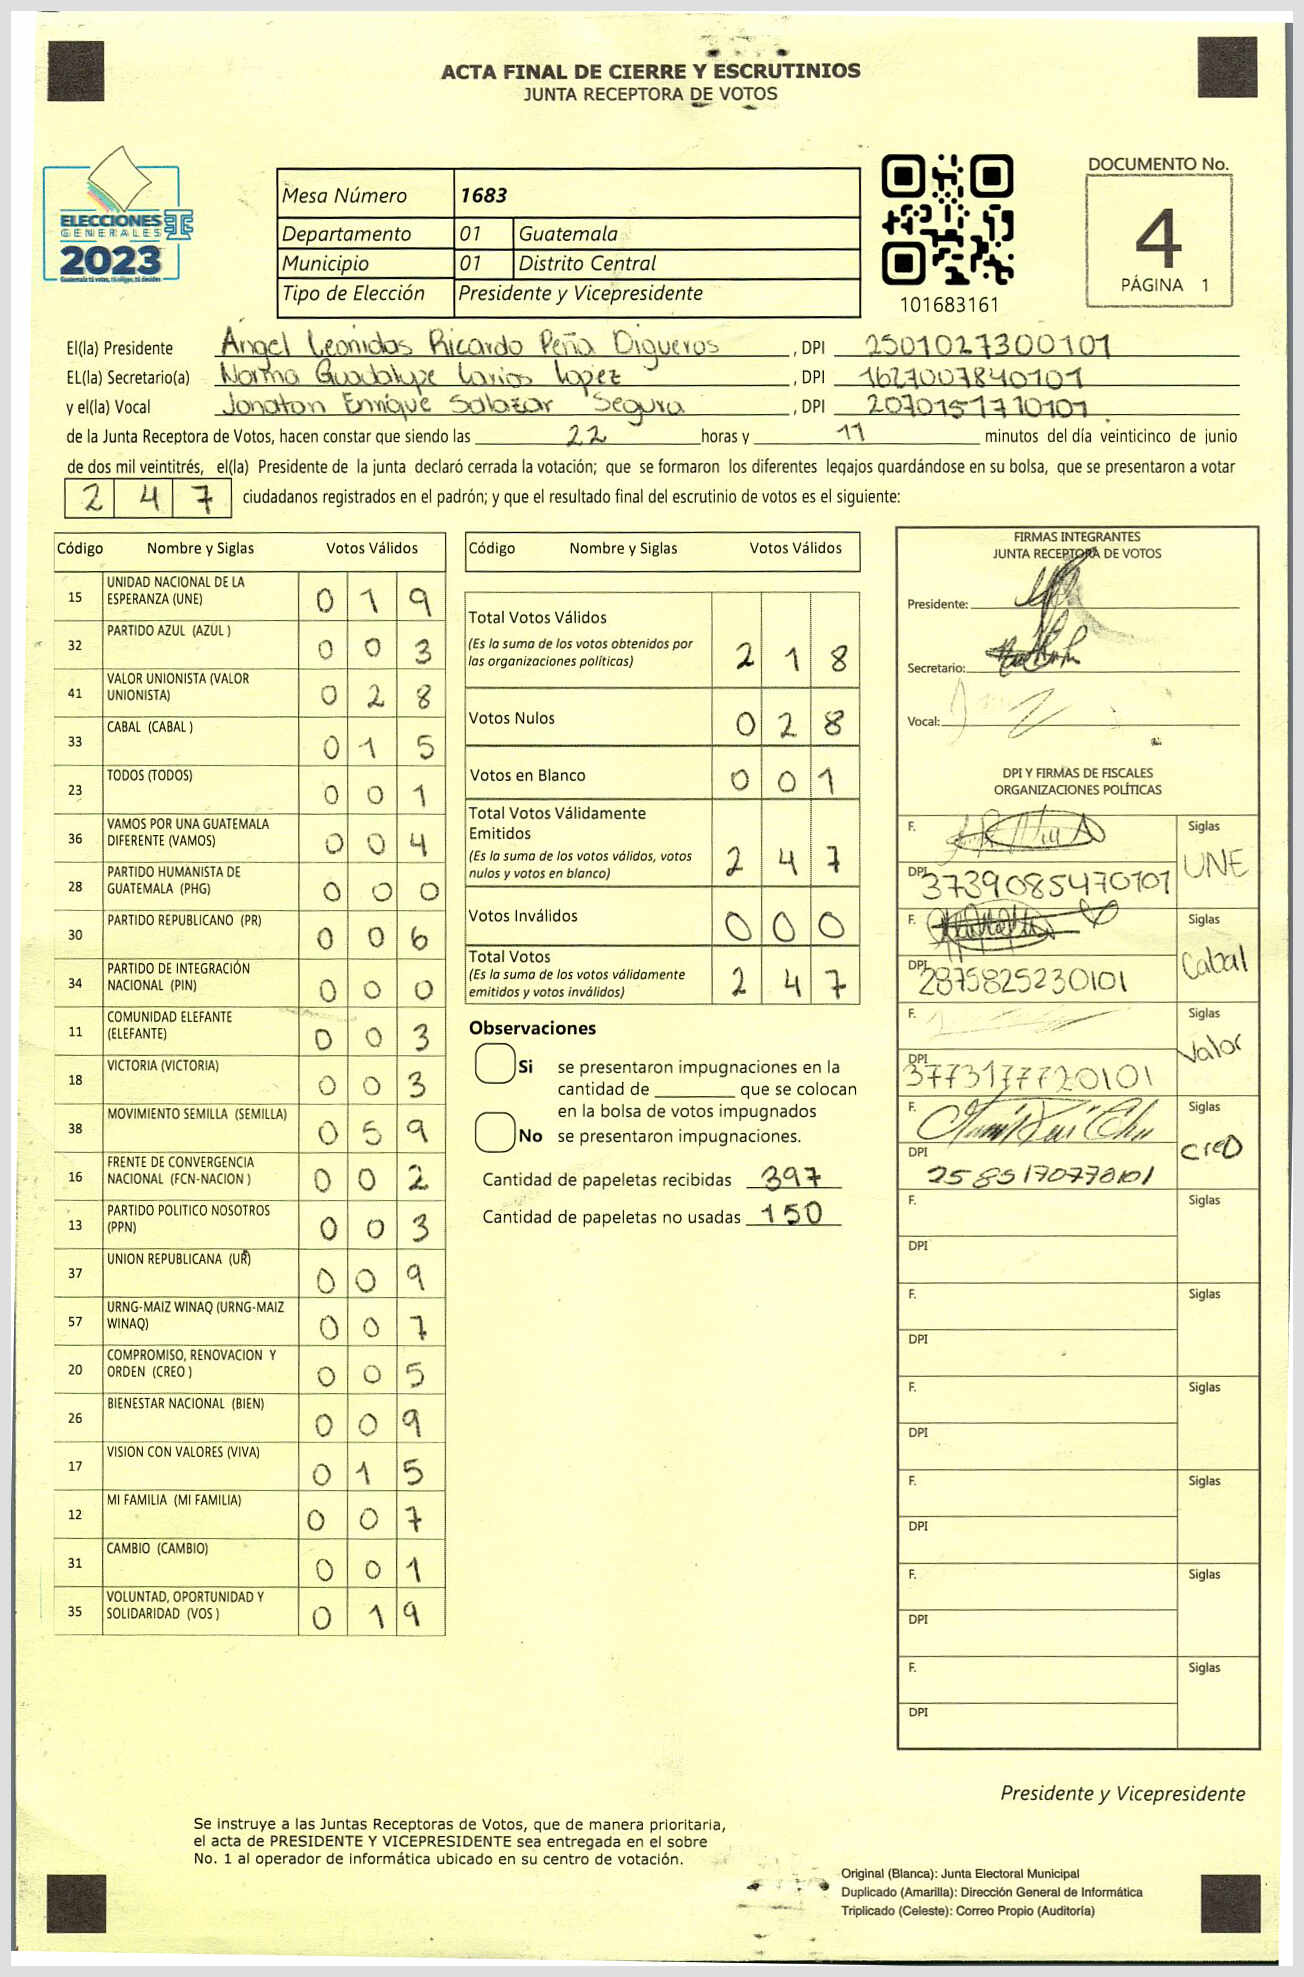 ACTA FINAL DE CIERRE Y ESCRUTINIOS
JUNTA RECEPTORA DE VOTOS
ELECCIONES
GENERALES
2023
Mesa Número 1683
Departamento 01 Guatemala
Municipio 01 Distrito Central
Tipo de Elección Presidente y Vicepresidente
101683161
DOCUMENTO No.
4
PÁGINA 1
El(la) Presidente Angel Leonidas Ricardo Peña Digueros , DPI 2501027300101
EL(la) Secretario(a) Norma Guadalupe Larios Lopez , DPI 1627007840101
y el(la) Vocal Jonatan Enrique Salazar Segura , DPI 2070151710101
de la Junta Receptora de Votos, hacen constar que siendo las 22 horas y 11 minutos del día veinticinco de junio
de dos mil veintitrés, el(la) Presidente de la junta declaró cerrada la votación; que se formaron los diferentes legajos guardándose en su bolsa, que se presentaron a votar
247 ciudadanos registrados en el padrón; y que el resultado final del escrutinio de votos es el siguiente:
Código Nombre y Siglas Votos Válidos
15 UNIDAD NACIONAL DE LA ESPERANZA (UNE) 019
32 PARTIDO AZUL (AZUL ) 003
41 VALOR UNIONISTA (VALOR UNIONISTA) 028
33 CABAL (CABAL ) 015
23 TODOS (TODOS) 001
36 VAMOS POR UNA GUATEMALA DIFERENTE (VAMOS) 004
28 PARTIDO HUMANISTA DE GUATEMALA (PHG) 000
30 PARTIDO REPUBLICANO (PR) 006
34 PARTIDO DE INTEGRACIÓN NACIONAL (PIN) 000
11 COMUNIDAD ELEFANTE (ELEFANTE) 003
18 VICTORIA (VICTORIA) 003
38 MOVIMIENTO SEMILLA (SEMILLA) 059
16 FRENTE DE CONVERGENCIA NACIONAL (FCN-NACION ) 002
13 PARTIDO POLITICO NOSOTROS (PPN) 003
37 UNION REPUBLICANA (UR) 009
57 URNG-MAIZ WINAQ (URNG-MAIZ WINAQ) 007
20 COMPROMISO, RENOVACION Y ORDEN (CREO ) 005
26 BIENESTAR NACIONAL (BIEN) 009
17 VISION CON VALORES (VIVA) 015
12 MI FAMILIA (MI FAMILIA) 007
31 CAMBIO (CAMBIO) 001
35 VOLUNTAD, OPORTUNIDAD Y SOLIDARIDAD (VOS ) 019
Código Nombre y Siglas Votos Válidos
Total Votos Válidos
(Es la suma de los votos obtenidos por las organizaciones políticas) 218
Votos Nulos 028
Votos en Blanco 001
Total Votos Válidamente Emitidos
(Es la suma de los votos válidos, votos nulos y votos en blanco) 247
Votos Inválidos 000
Total Votos
(Es la suma de los votos válidamente emitidos y votos inválidos) 247
Observaciones
Si se presentaron impugnaciones en la
cantidad de ________ que se colocan
en la bolsa de votos impugnados
No se presentaron impugnaciones.
Cantidad de papeletas recibidas 397
Cantidad de papeletas no usadas 150
FIRMAS INTEGRANTES
JUNTA RECEPTORA DE VOTOS
Presidente:
Secretario:
Vocal:
DPI Y FIRMAS DE FISCALES
ORGANIZACIONES POLÍTICAS
F. Siglas
DPI 3739085470101 UNE
F. Siglas
DPI 2875825230101 Cabal
F. Siglas
DPI 3773177720101 Valor
F. Siglas
DPI 2585170770101 CreO
F. Siglas
DPI
F. Siglas
DPI
F. Siglas
DPI
F. Siglas
DPI
F. Siglas
DPI
F. Siglas
DPI
Presidente y Vicepresidente
Se instruye a las Juntas Receptoras de Votos, que de manera prioritaria,
el acta de PRESIDENTE Y VICEPRESIDENTE sea entregada en el sobre
No. 1 al operador de informática ubicado en su centro de votación.
Original (Blanca): Junta Electoral Municipal
Duplicado (Amarilla): Dirección General de Informática
Triplicado (Celeste): Correo Propio (Auditoría)